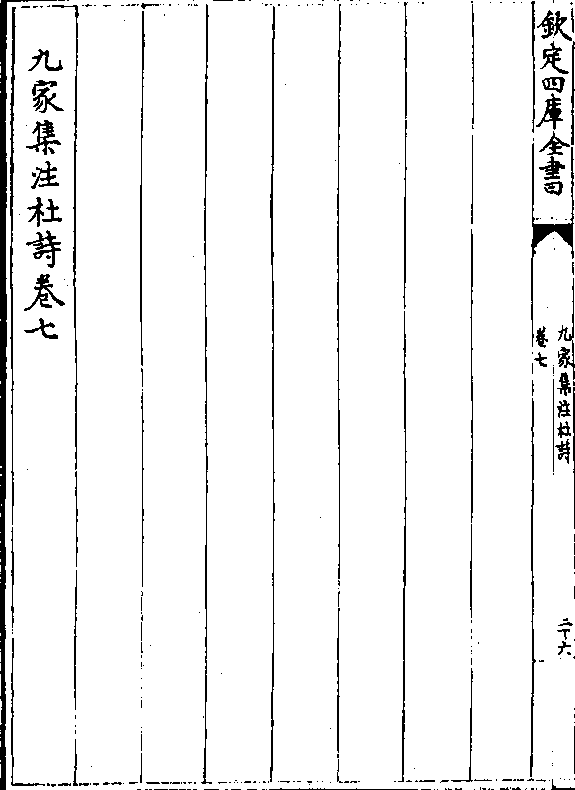 欽定四庫全書
九家集注杜詩
卷七
二十六
九家集注杜詩卷七